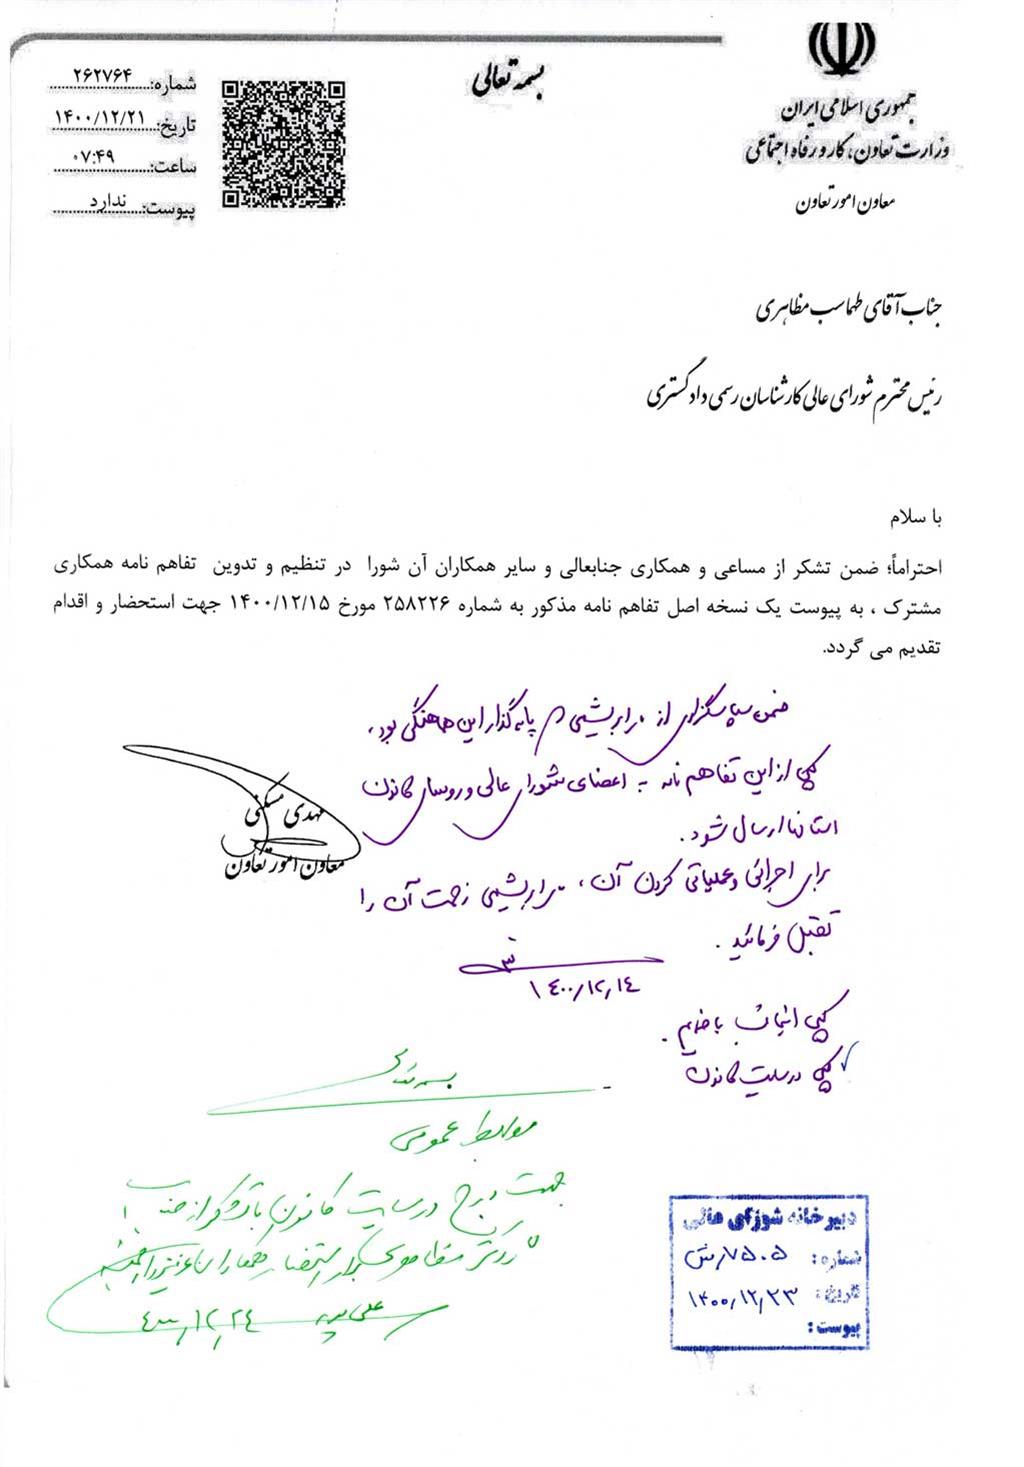 بسمه تعالی
جمهوری اسلامی ایران
وزارت تعاون، کار و رفاه اجتماعی
معاون امور تعاون
شماره: ۲۶۲۷۶۴
تاریخ: ۱۴۰۰/۱۲/۲۱
ساعت: ۰۷:۴۹
پیوست: ندارد
جناب آقای طهماسب مظاهری
رئیس محترم شورای عالی کارشناسان رسمی دادگستری
با سلام
احتراماً؛ ضمن تشکر از مساعی و همکاری جنابعالی و سایر همکاران آن شورا در تنظیم و تدوین تفاهم نامه همکاری
مشترک ، به پیوست یک نسخه اصل تفاهم نامه مذکور به شماره ۲۵۸۲۲۶ مورخ ۱۴۰۰/۱۲/۱۵ جهت استحضار و اقدام
تقدیم می گردد.
مهدی مسکنی
معاون امور تعاون
ضمن سپاسگزاری از ابریشمی پایه گذار این هماهنگی بود.
کپی از این تفاهم نامه به اعضای شورای عالی و روسای کانون
استانها ارسال شود.
برای اجرائی و عملیاتی کردن آن، ابریشمی زحمت آن را
تقبل فرمائید.
۱۴۰۰/۱۲/۱۴
کپی
کپی در سایت کانون
بسمه تعالی
روابط عمومی
جهت درج در سایت کانون با تشکر از جناب
دکتر
۱۲/۲۴
دبیرخانه شورای عالی
شماره: ۷۵۰۵/ش
تاریخ: ۱۴۰۰/۱۲/۲۳
پیوست: